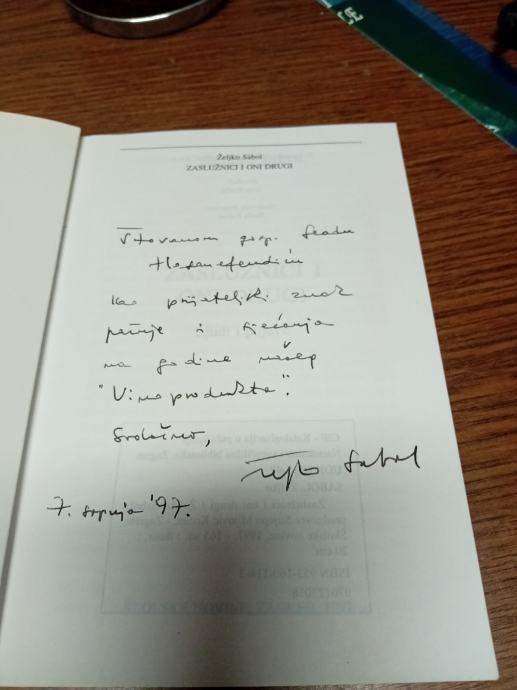 Željko Sabol
ZASLUŽNICI I ONI DRUGI
Štovanom gosp. Seadu
Hasanefendiću
kao prijateljski znak
pažnje i sjećanja
na godine našeg
"Vinoprodukta".
Srdačno,
Željko Sabol
7. srpnja '97.